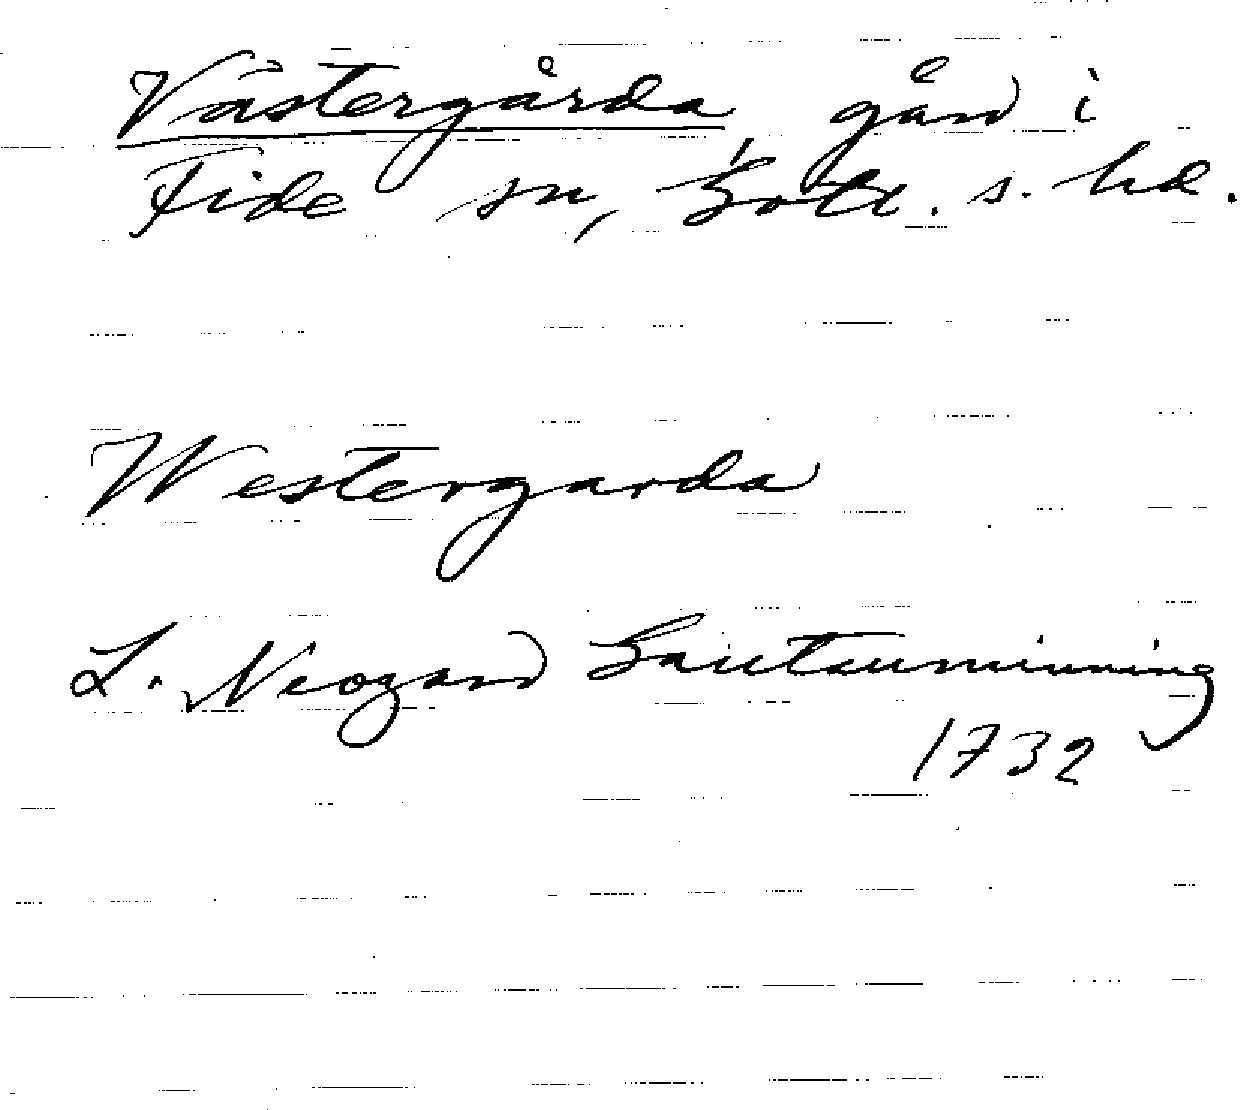 Västergårda, gård i
Fide sn, Gotl. s. hd.
Westergarda
L. Neogard Gautauminning
1732